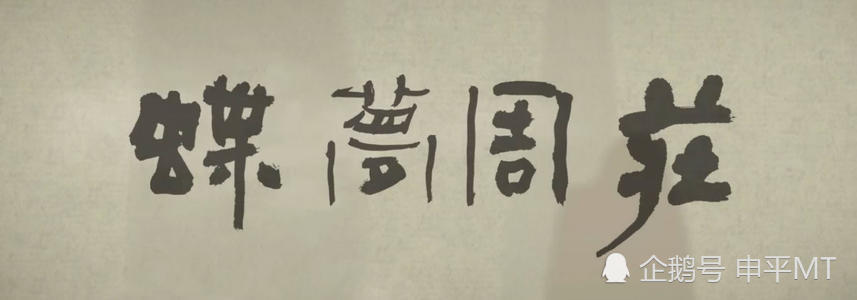 莊周夢蝶
企鹅号 申平MT